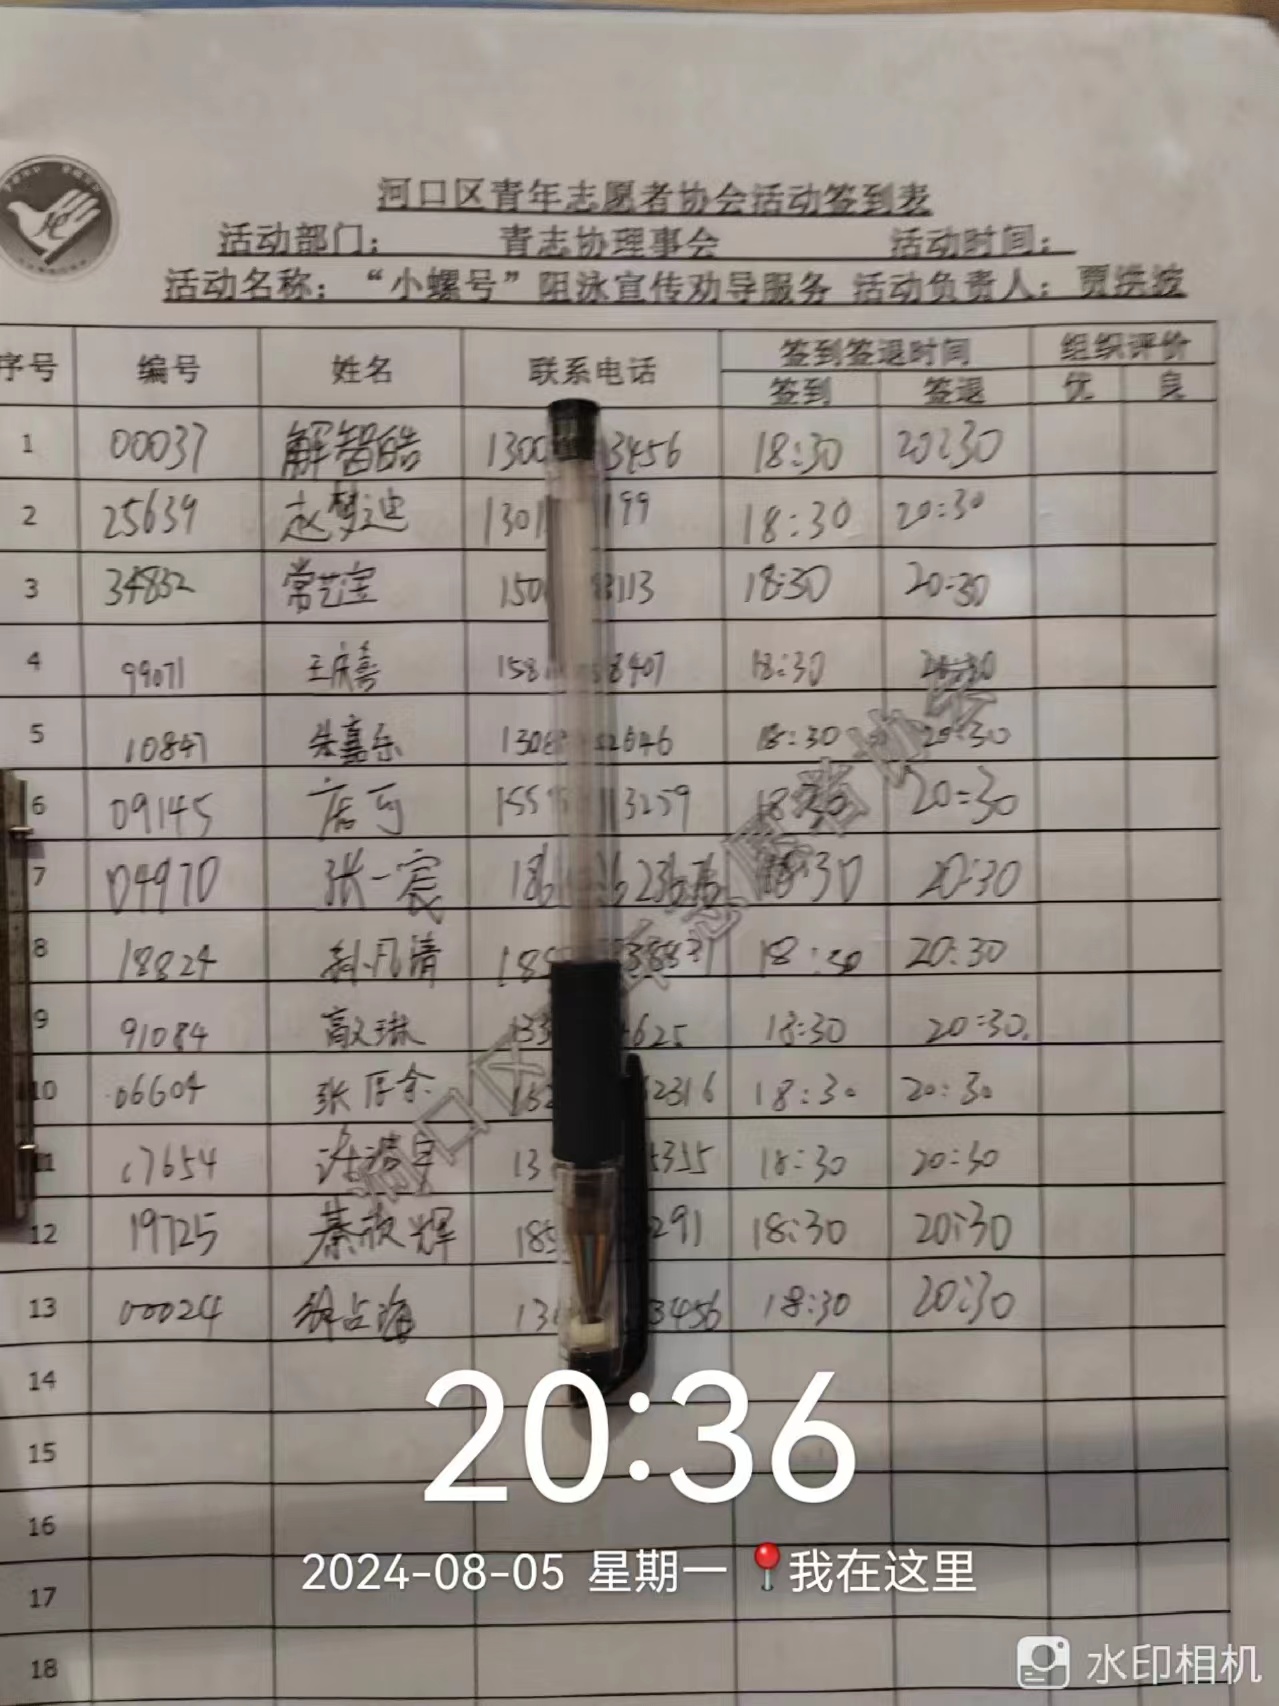 河口区青年志愿者协会活动签到表
活动部门： 青志协理事会 活动时间：
活动名称：“小螺号”阻泳宣传劝导服务 活动负责人：贾洪波
序号 编号 姓名 联系电话 签到签退时间 组织评价
签到 签退 优 良
1 00037 解智皓 1300 3456 18:30 20:30
2 25639 赵梦迪 1301 199 18:30 20:30
3 34832 常艺宝 150 3113 18:30 20:30
4 99071 王庆喜 158 8407 18:30 20:30
5 10847 朱嘉乐 1306 2646 18:30 20:30
6 09145 13259 18:30 20:30
7 04970 张一宸 186 18:30 20:30
8 18824 孙凡清 18:30 20:30
9 91084 高文琳 133 625 18:30 20:30.
10 06604 张 2316 18:30 20:30
11 c7654 13 5355 18:30 20:30
12 19725 秦 辉 185 291 18:30 20:30
13 00024 徐占海 13 3456 18:30 20:30
14
15
16
17
18
河口区青年志愿者协会
20:36
2024-08-05 星期一 我在这里
水印相机